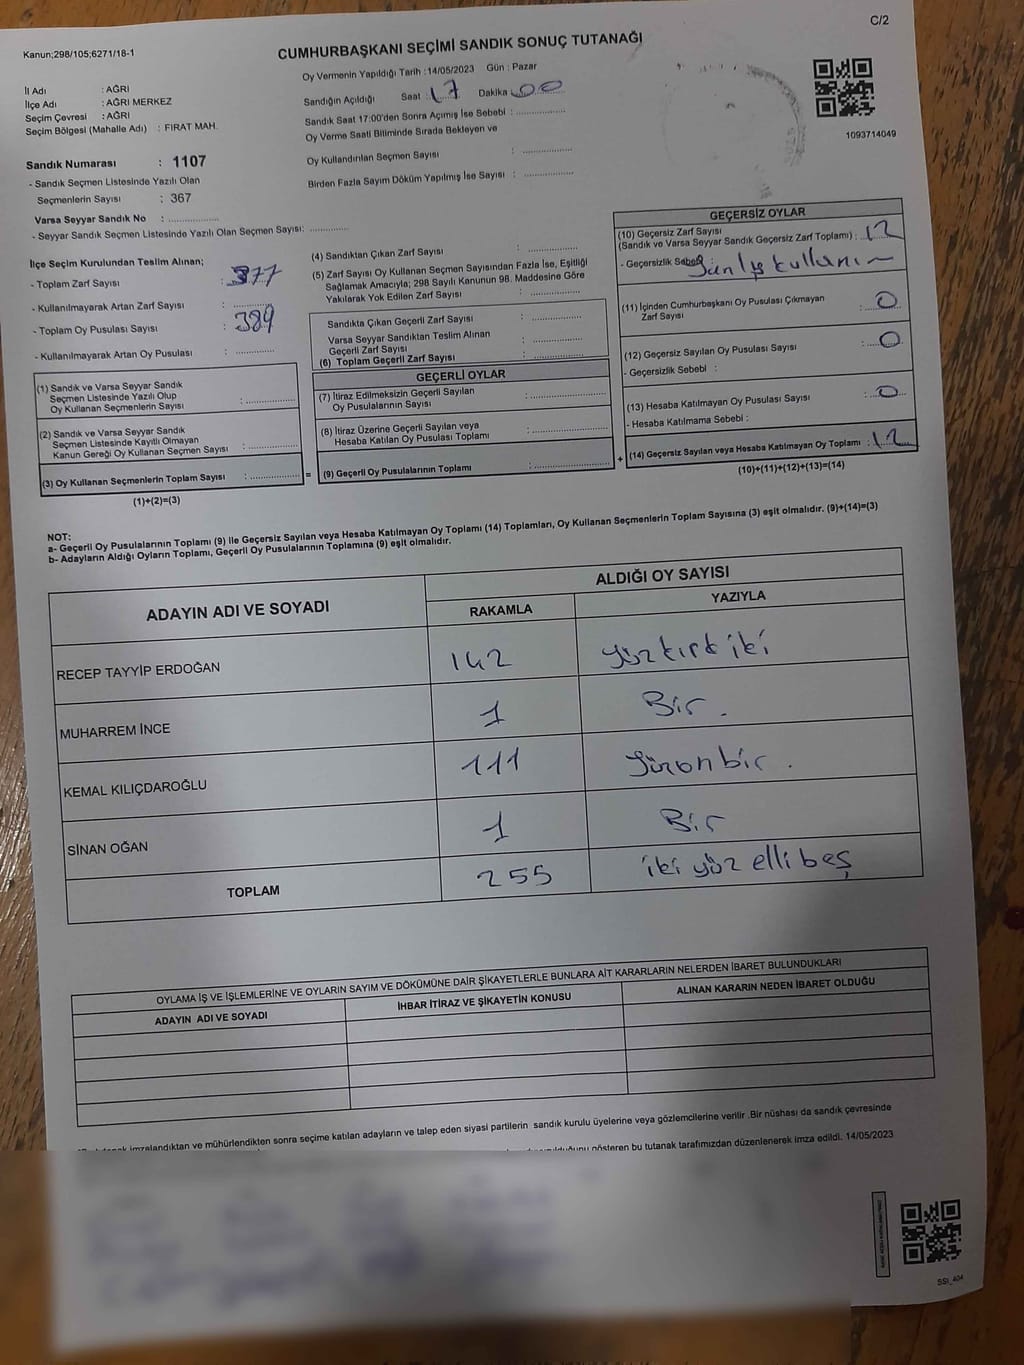 C/2
Kanun;298/105;6271/18-1
CUMHURBAŞKANI SEÇİMİ SANDIK SONUÇ TUTANAĞI
İl Adı : AĞRI
İlçe Adı : AĞRI MERKEZ
Seçim Çevresi : AĞRI
Seçim Bölgesi (Mahalle Adı) : FIRAT MAH.
Sandık Numarası : 1107
- Sandık Seçmen Listesinde Yazılı Olan
Seçmenlerin Sayısı : 367
Varsa Seyyar Sandık No : ..................
- Seyyar Sandık Seçmen Listesinde Yazılı Olan Seçmen Sayısı: .............
Oy Vermenin Yapıldığı Tarih :14/05/2023 Gün : Pazar
Sandığın Açıldığı Saat : 17 Dakika 00
Sandık Saat 17:00'den Sonra Açımış İse Sebebi : ..................
Oy Verme Saati Bitiminde Sırada Bekleyen ve
Oy Kullandırılan Seçmen Sayısı : ..................
Birden Fazla Sayım Döküm Yapılmış İse Sayısı : ..................
1093714049
İlçe Seçim Kurulundan Teslim Alınan;
- Toplam Zarf Sayısı : 377
- Kullanılmayarak Artan Zarf Sayısı : .............
- Toplam Oy Pusulası Sayısı : 389
- Kullanılmayarak Artan Oy Pusulası : .............
(1) Sandık ve Varsa Seyyar Sandık
Seçmen Listesinde Yazılı Olup
Oy Kullanan Seçmenlerin Sayısı : ..................
(2) Sandık ve Varsa Seyyar Sandık
Seçmen Listesinde Kayıtlı Olmayan
Kanun Gereği Oy Kullanan Seçmen Sayısı : ..................
(3) Oy Kullanan Seçmenlerin Toplam Sayısı : ..................
(1)+(2)=(3)
=
(4) Sandıktan Çıkan Zarf Sayısı : ..................
(5) Zarf Sayısı Oy Kullanan Seçmen Sayısından Fazla İse, Eşitliği
Sağlamak Amacıyla; 298 Sayılı Kanunun 98. Maddesine Göre
Yakılarak Yok Edilen Zarf Sayısı : ..................
Sandıkta Çıkan Geçerli Zarf Sayısı : ..................
Varsa Seyyar Sandıktan Teslim Alınan
Geçerli Zarf Sayısı : ..................
(6) Toplam Geçerli Zarf Sayısı : ..................
GEÇERLİ OYLAR
(7) İtiraz Edilmeksizin Geçerli Sayılan
Oy Pusulalarının Sayısı : ..................
(8) İtiraz Üzerine Geçerli Sayılan veya
Hesaba Katılan Oy Pusulası Toplamı : ..................
(9) Geçerli Oy Pusulalarının Toplamı : ..................
+
GEÇERSİZ OYLAR
(10) Geçersiz Zarf Sayısı
(Sandık ve Varsa Seyyar Sandık Geçersiz Zarf Toplamı) : 12
- Geçersizlik Sebebi :
(11) İçinden Cumhurbaşkanı Oy Pusulası Çıkmayan
Zarf Sayısı : 0
(12) Geçersiz Sayılan Oy Pusulası Sayısı : 0
- Geçersizlik Sebebi :
(13) Hesaba Katılmayan Oy Pusulası Sayısı : 0
- Hesaba Katılmama Sebebi :
(14) Geçersiz Sayılan veya Hesaba Katılmayan Oy Toplamı : 12
(10)+(11)+(12)+(13)=(14)
NOT:
a- Geçerli Oy Pusulalarının Toplamı (9) ile Geçersiz Sayılan veya Hesaba Katılmayan Oy Toplamı (14) Toplamları, Oy Kullanan Seçmenlerin Toplam Sayısına (3) eşit olmalıdır. (9)+(14)=(3)
b- Adayların Aldığı Oyların Toplamı, Geçerli Oy Pusulalarının Toplamına (9) eşit olmalıdır.
ADAYIN ADI VE SOYADI ALDIĞI OY SAYISI
RAKAMLA YAZIYLA
RECEP TAYYİP ERDOĞAN 142 yüzkırkiki
MUHARREM İNCE 1 Bir.
KEMAL KILIÇDAROĞLU 111 Yüzonbir.
SİNAN OĞAN 1 Bir
TOPLAM 255 iki yüz elli beş
OYLAMA İŞ VE İŞLEMLERİNE VE OYLARIN SAYIM VE DÖKÜMÜNE DAİR ŞİKAYETLERLE BUNLARA AİT KARARLARIN NELERDEN İBARET BULUNDUKLARI
ADAYIN ADI VE SOYADI İHBAR İTİRAZ VE ŞİKAYETİN KONUSU ALINAN KARARIN NEDEN İBARET OLDUĞU
imzalandıktan ve mühürlendikten sonra seçime katılan adayların ve talep eden siyasi partilerin sandık kurulu üyelerine veya gözlemcilerine verilir .Bir nüshası da sandık çevresinde
gösteren bu tutanak tarafımızdan düzenlenerek imza edildi. 14/05/2023
SSI_404